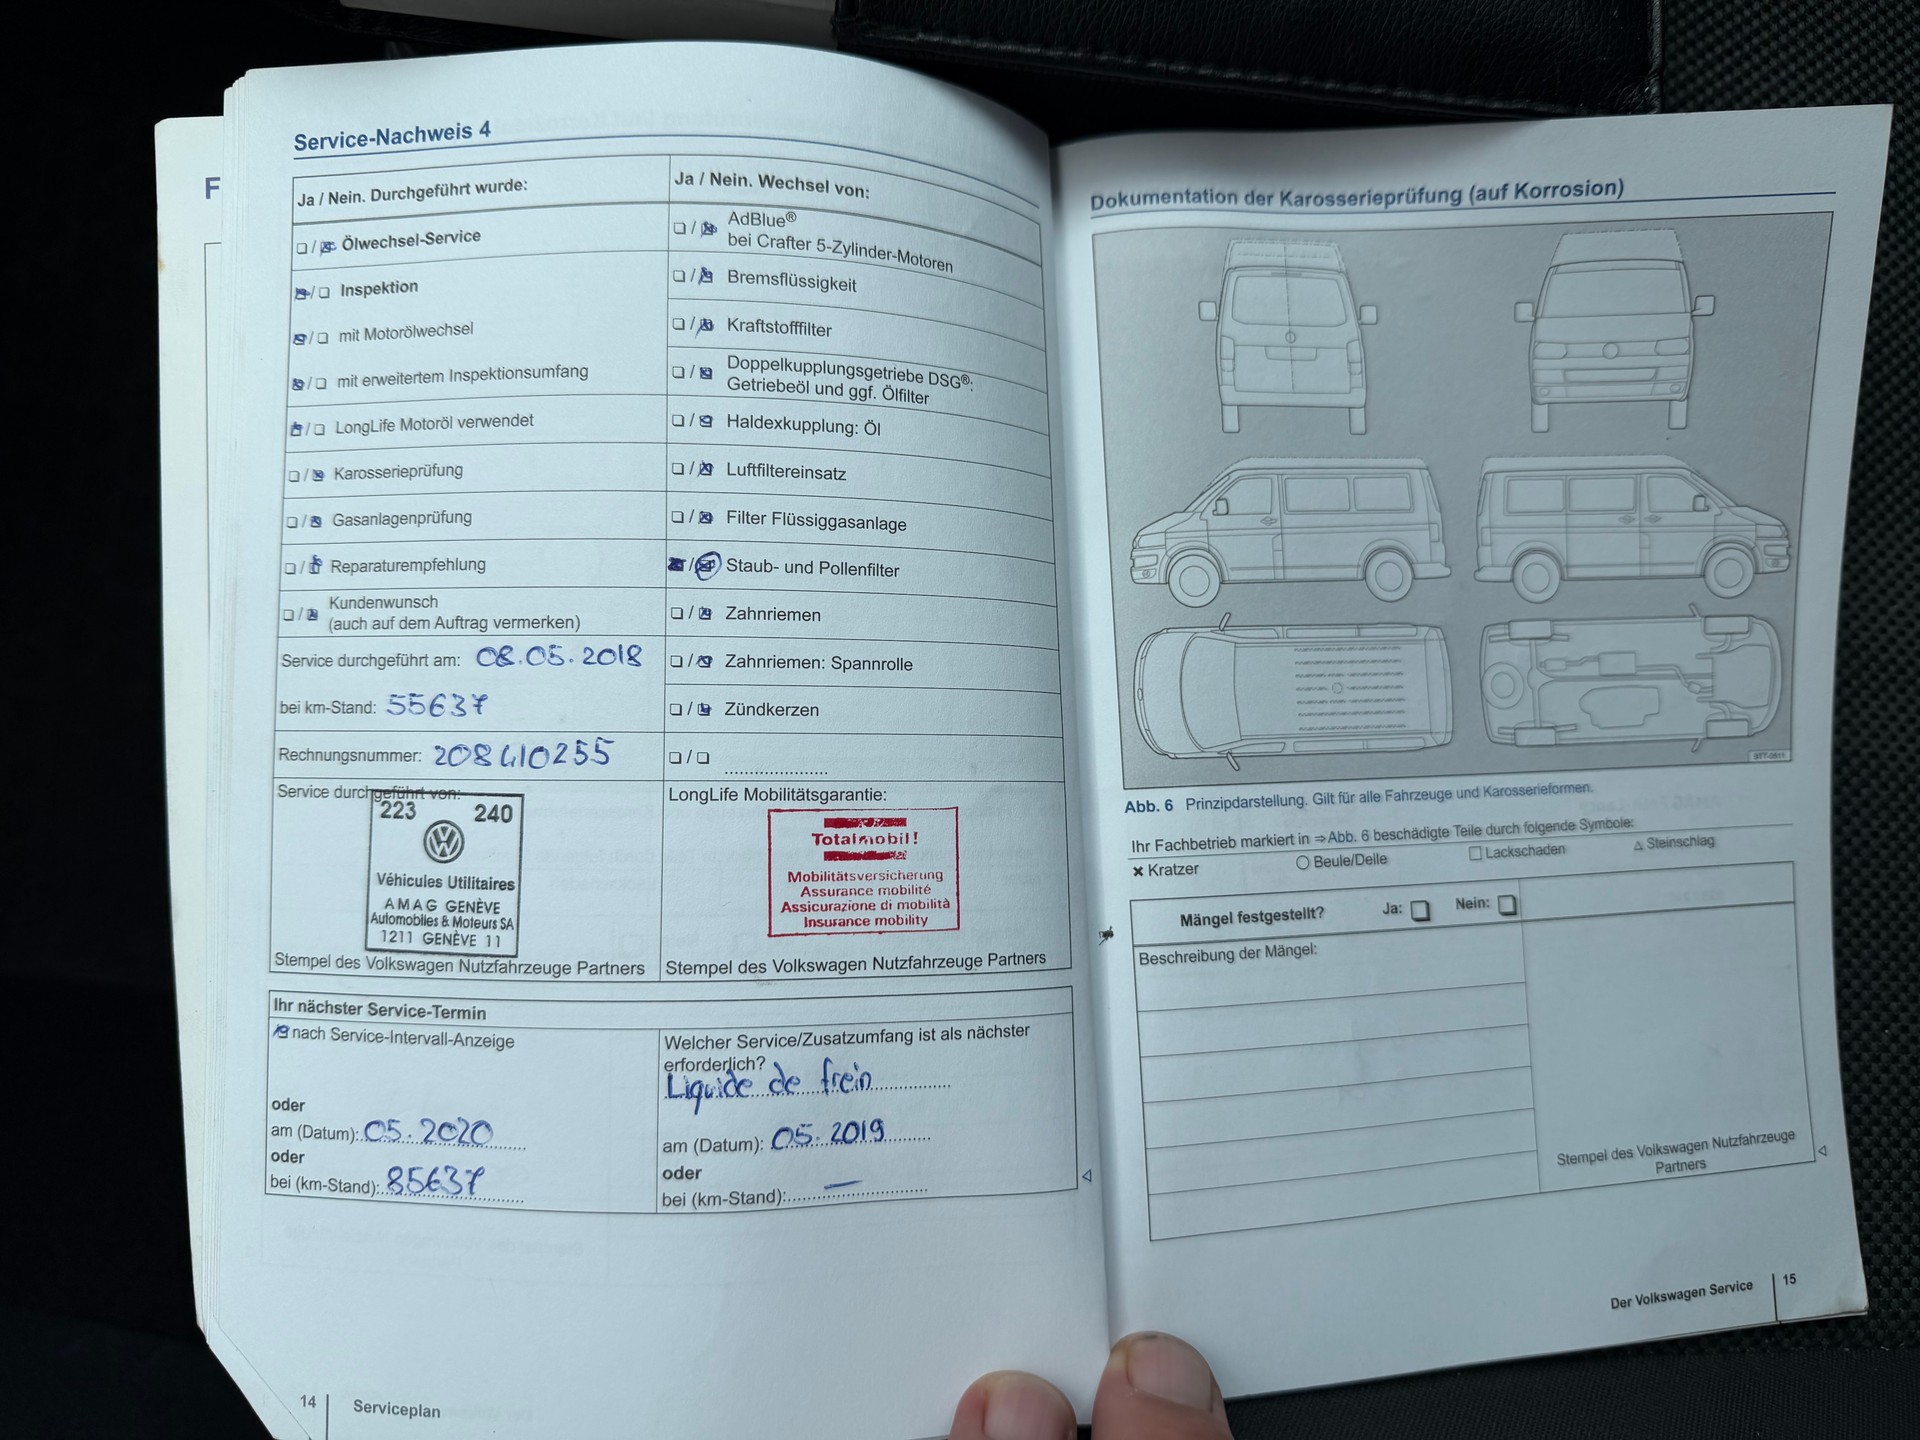 F
Service-Nachweis 4
Ja / Nein. Durchgeführt wurde:
❏ / ❏ Ölwechsel-Service
❏ / ❏ Inspektion
❏ / ❏ mit Motorölwechsel
❏ / ❏ mit erweitertem Inspektionsumfang
❏ / ❏ LongLife Motoröl verwendet
❏ / ❏ Karosserieprüfung
❏ / ❏ Gasanlagenprüfung
❏ / ❏ Reparaturempfehlung
❏ / ❏ Kundenwunsch
(auch auf dem Auftrag vermerken)
Service durchgeführt am: 08.05.2018
bei km-Stand: 55637
Rechnungsnummer: 208410255
Service durchgeführt von:
223 240
Véhicules Utilitaires
AMAG GENÈVE
Automobiles & Moteurs SA
1211 GENÈVE 11
Stempel des Volkswagen Nutzfahrzeuge Partners
Ja / Nein. Wechsel von:
❏ / ❏ AdBlue®
bei Crafter 5-Zylinder-Motoren
❏ / ❏ Bremsflüssigkeit
❏ / ❏ Kraftstofffilter
❏ / ❏ Doppelkupplungsgetriebe DSG®:
Getriebeöl und ggf. Ölfilter
❏ / ❏ Haldexkupplung: Öl
❏ / ❏ Luftfiltereinsatz
❏ / ❏ Filter Flüssiggasanlage
❏ / ❏ Staub- und Pollenfilter
❏ / ❏ Zahnriemen
❏ / ❏ Zahnriemen: Spannrolle
❏ / ❏ Zündkerzen
❏ / ❏ ......................
LongLife Mobilitätsgarantie:
Totalmobil!
Mobilitätsversicherung
Assurance mobilité
Assicurazione di mobilità
Insurance mobility
Stempel des Volkswagen Nutzfahrzeuge Partners
Ihr nächster Service-Termin
❏ nach Service-Intervall-Anzeige
oder
am (Datum): 05.2020
oder
bei (km-Stand): 85637
Welcher Service/Zusatzumfang ist als nächster
erforderlich?
Liquide de frein
am (Datum): 05.2019
oder
bei (km-Stand): —
14 | Serviceplan
Dokumentation der Karosserieprüfung (auf Korrosion)
Abb. 6 Prinzipdarstellung. Gilt für alle Fahrzeuge und Karosserieformen.
Ihr Fachbetrieb markiert in ⇒Abb. 6 beschädigte Teile durch folgende Symbole:
✖ Kratzer ○ Beule/Delle □ Lackschaden △ Steinschlag
Mängel festgestellt? Ja: ❏ Nein: ❏
Beschreibung der Mängel:
Stempel des Volkswagen Nutzfahrzeuge
Partners
Der Volkswagen Service | 15